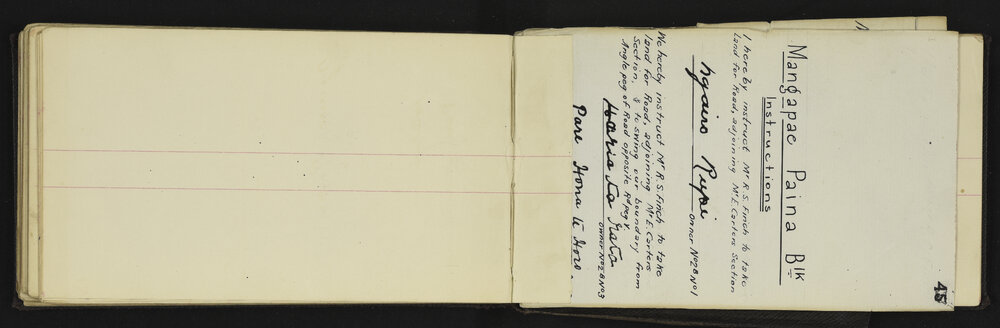 45
Mangapae Paina Blk
Instructions
I hereby instruct Mr R. S. Finch to take
land for Road, adjoining Mr E. Carters Section
Ngairo Rupi
Owner No 2B No 1
We hereby instruct Mr R. S. Finch to take
land for Road, adjoining Mr E. Carters
Section, & to swing our boundary from
Angle peg of Road opposite Rd peg V.
Owner No 2B No 3
Pare Hona te